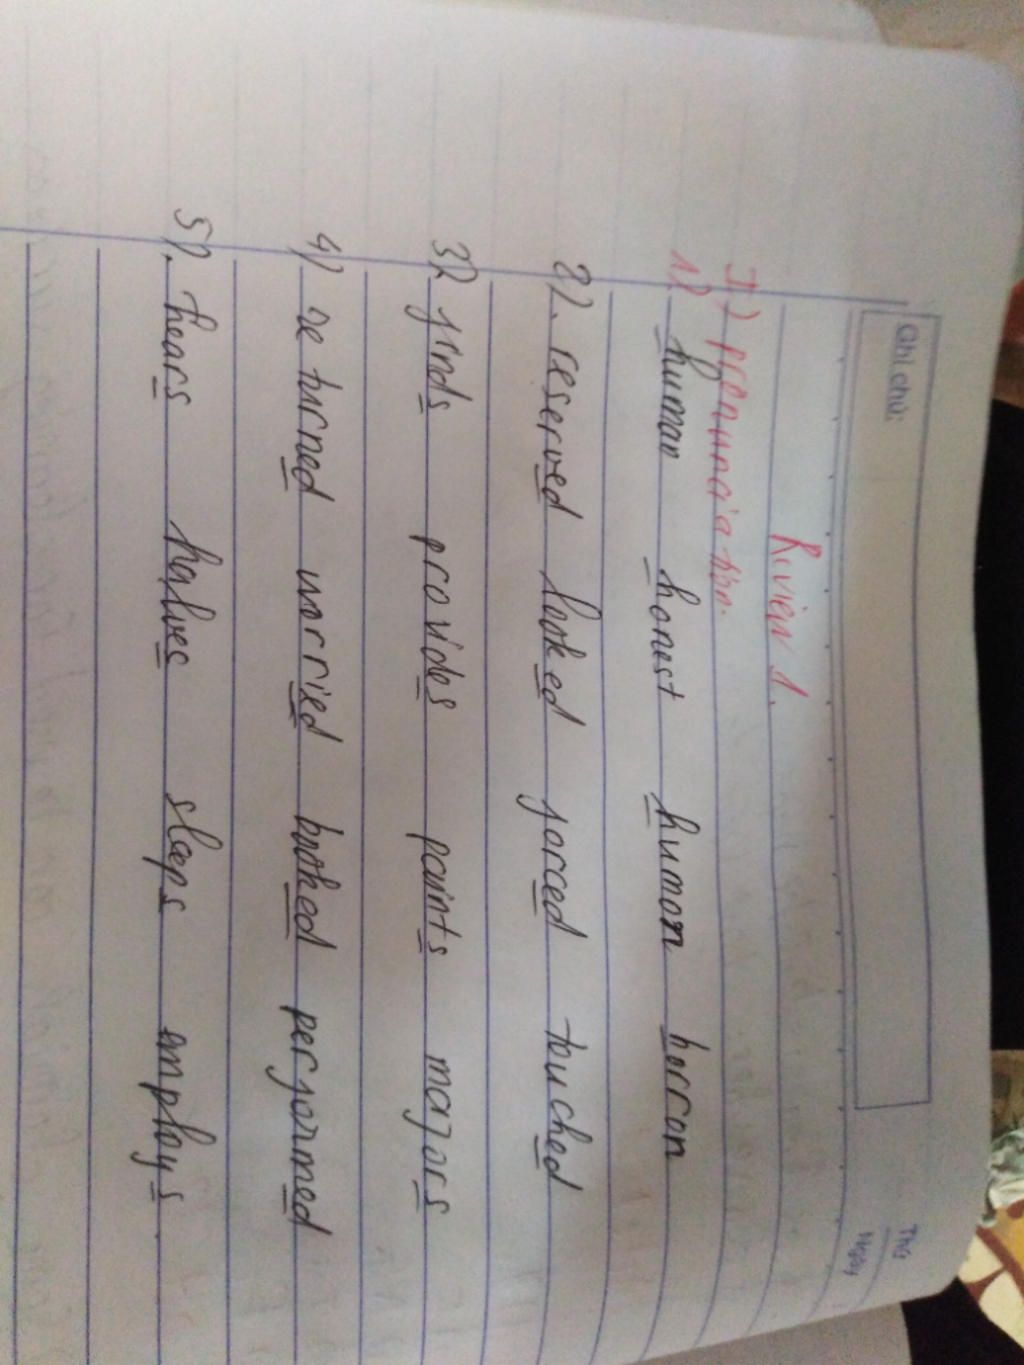 Ghi chú:
Thứ
Ngày
Review 1.
I) pronunciation.
1). human honest humon horron
2). reserved looked forced touched
3). finds provides paints majors
4) returned worried booked performed
5). hears halves sleeps employs